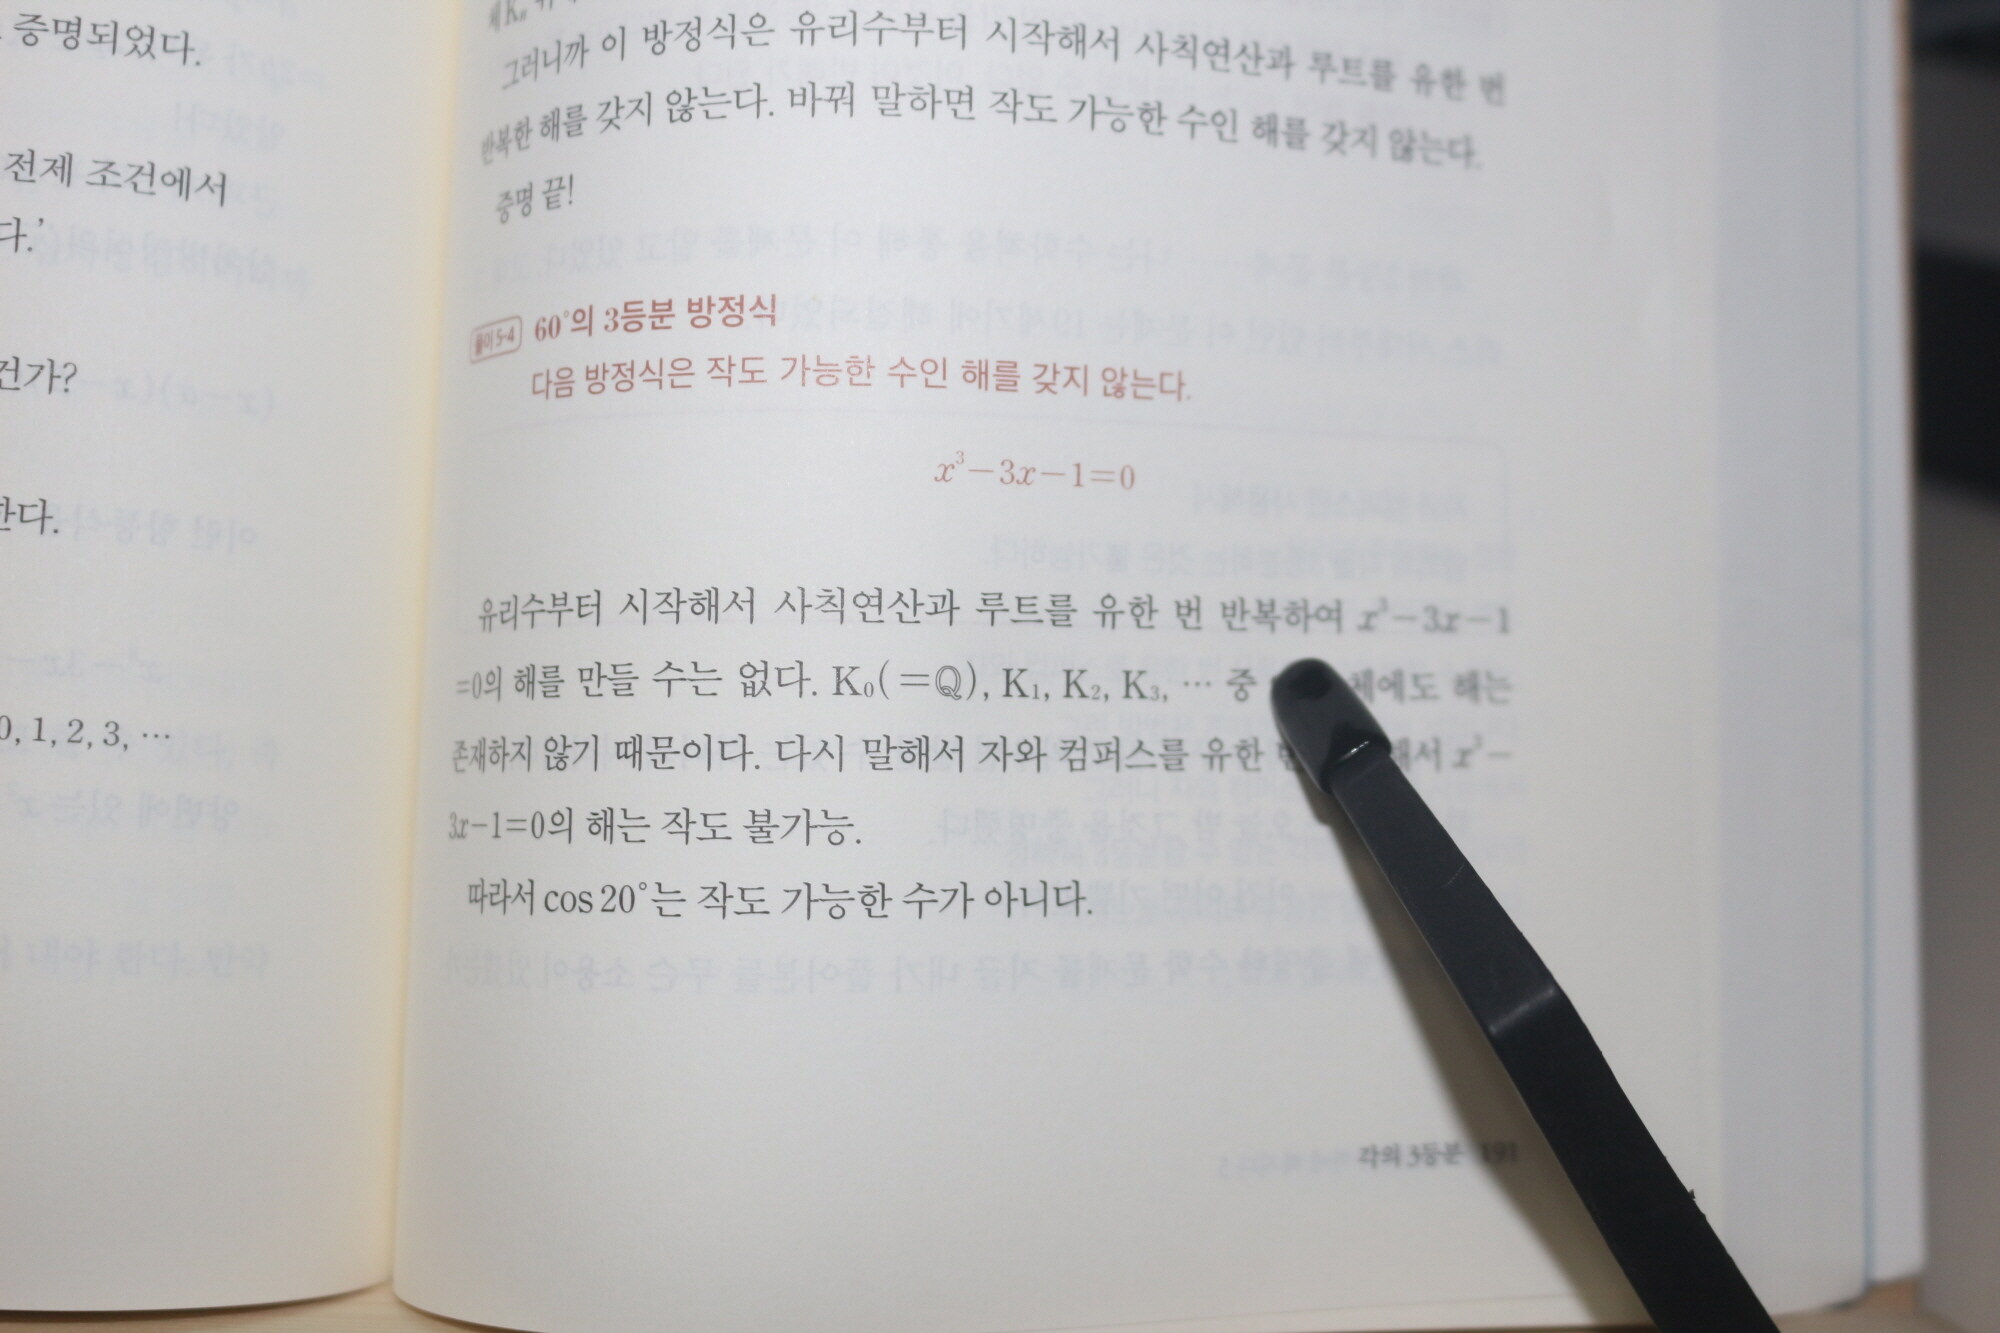 증명되었다.
전제 조건에서
다.'
건가?
한다.
0, 1, 2, 3, …
그러니까 이 방정식은 유리수부터 시작해서 사칙연산과 루트를 유한 번
반복한 해를 갖지 않는다. 바꿔 말하면 작도 가능한 수인 해를 갖지 않는다.
증명 끝!
풀이 5-4 60°의 3등분 방정식
다음 방정식은 작도 가능한 수인 해를 갖지 않는다.
x³−3x−1=0
유리수부터 시작해서 사칙연산과 루트를 유한 번 반복하여 x³−3x−1
=0의 해를 만들 수는 없다. K₀(=ℚ), K₁, K₂, K₃, … 중 해는
존재하지 않기 때문이다. 다시 말해서 자와 컴퍼스를 유한 x³−
3x−1=0의 해는 작도 불가능.
따라서 cos 20°는 작도 가능한 수가 아니다.
각의 3등분 191